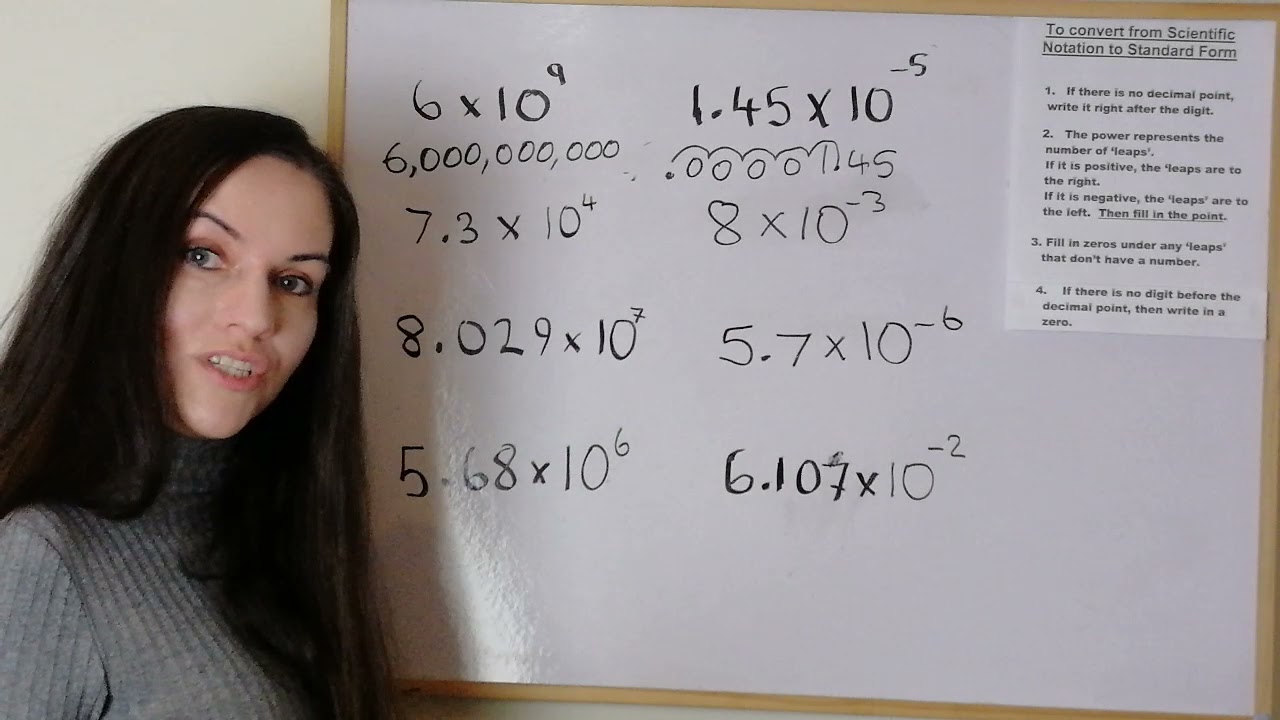 6 x 10⁹
6,000,000,000
7.3 x 10⁴
8.029 x 10⁷
5.68 x 10⁶
1.45 x 10⁻⁵
.00001.45
8 x 10⁻³
5.7 x 10⁻⁶
6.107 x 10⁻²
To convert from Scientific
Notation to Standard Form
1. If there is no decimal point,
write it right after the digit.
2. The power represents the
number of 'leaps'.
If it is positive, the 'leaps are to
the right.
If it is negative, the 'leaps' are to
the left. Then fill in the point.
3. Fill in zeros under any 'leaps'
that don't have a number.
4. If there is no digit before the
decimal point, then write in a
zero.